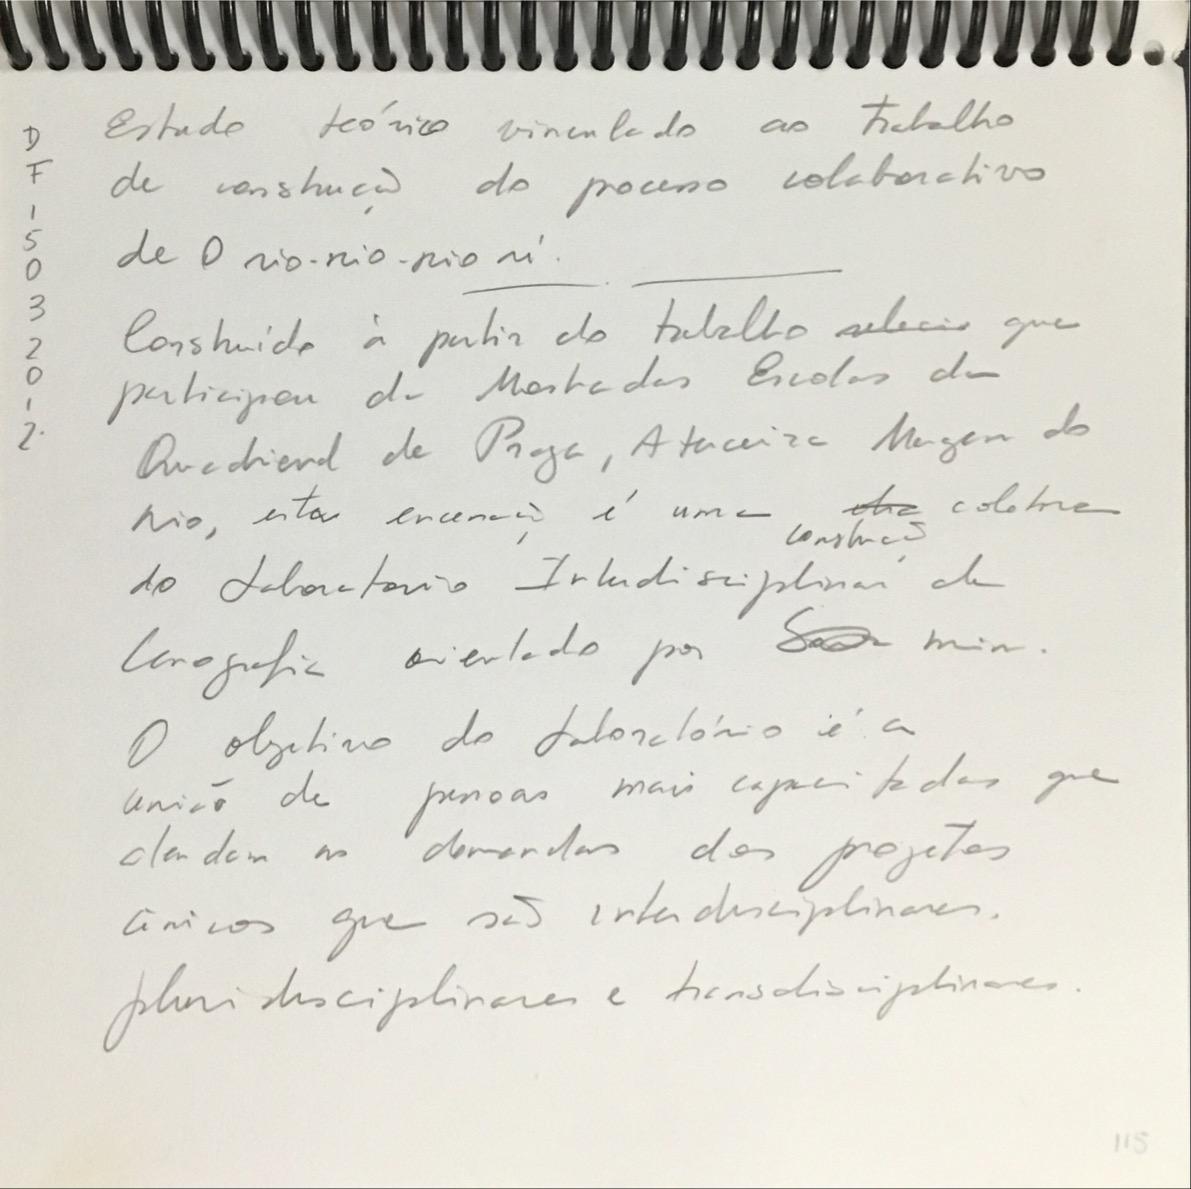 DF-15032012.
Estudo teórico vinculado ao trabalho
de construção do processo colaborativo
de O rio-rio-rio ri.
Construído à partir do trabalho que
participou da Mostra das Escolas da
Quadrienal de Praga, A terceira Margem do
Rio, esta encenação é uma construção coletiva
do Laboratorio Interdisciplinar de
Cenografia orientado por mim.
O objetivo do Laboratório é a
união de pessoas mais capacitadas que
atendam as demandas dos projetos
cênicos que são interdisciplinares.
pluridisciplinares e transdisciplinares.
115